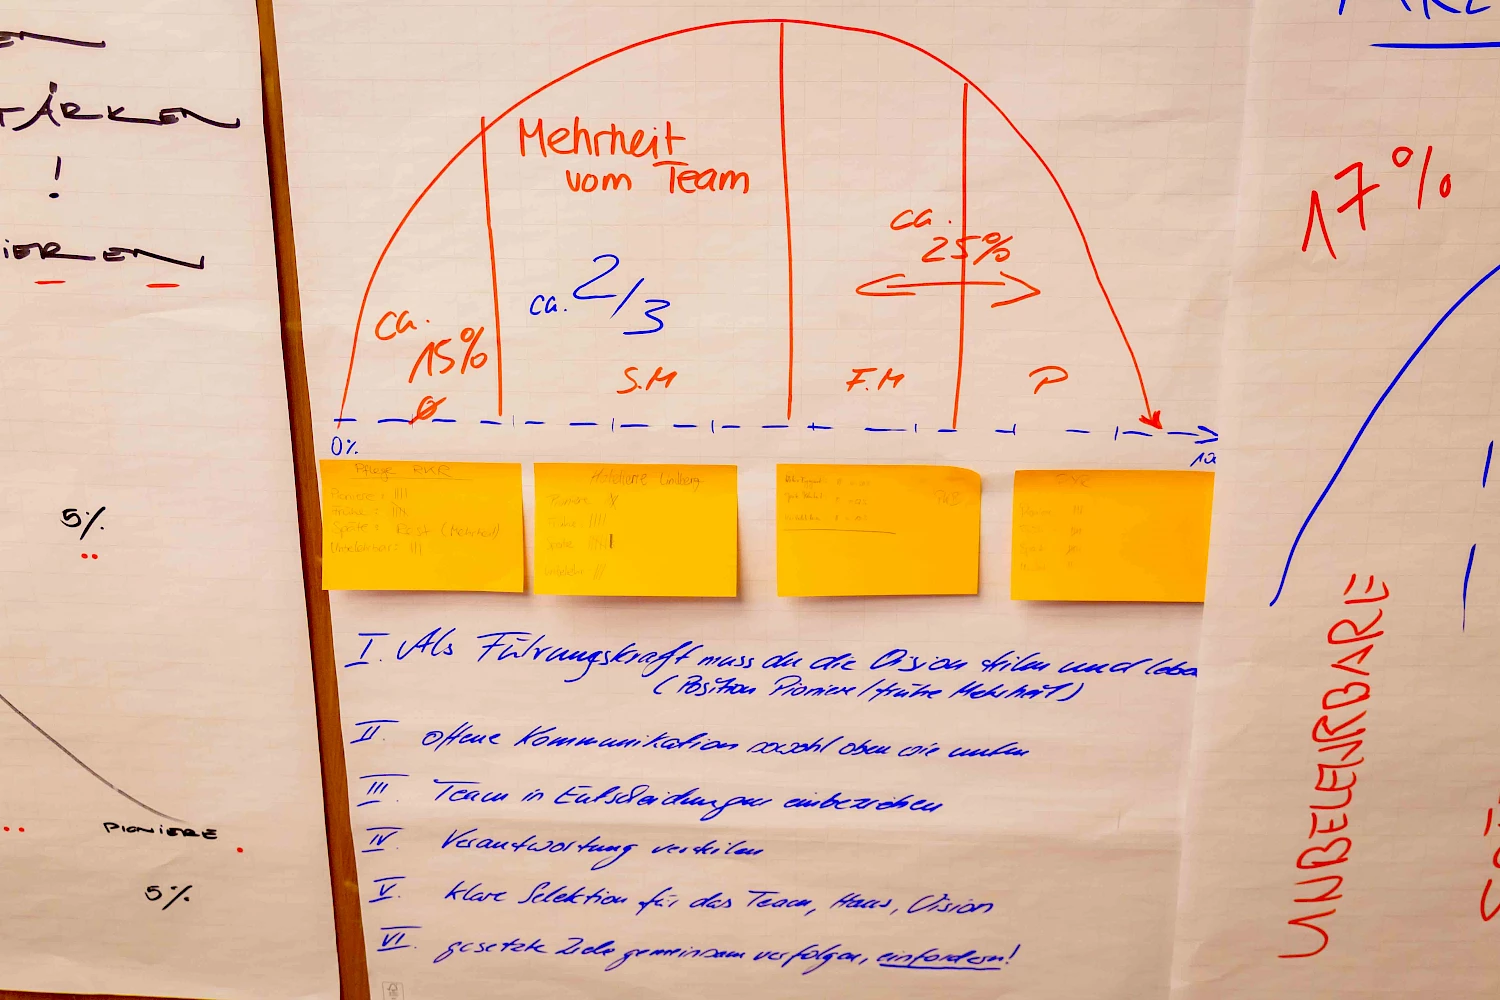 TÄRKEN
!
IEREN
5%
PIONIERE
5%
Mehrheit
vom Team
ca.
15%
ca. 2/3
ca.
25%
S.M
F.M
P
0%
Pflege
Pioniere: IIII
Frühe:
Späte: Rest (Mehrheit)
Unbelehrbar: III
Hotellerie Lindberg
Pioniere
Frühe IIII
Späte
I. Als Führungskraft muss du die Vision teilen und leben
(Position Pioniere/frühe Mehrheit)
II. offene Kommunikation sowohl oben wie unten
III. Team in Entscheidungen einbeziehen
IV. Verantwortung verteilen
V. klare Selektion für das Team, Haus, Vision
VI. gesetzte Ziele gemeinsam verfolgen, einfordern!
17%
UNBELEHRBARE